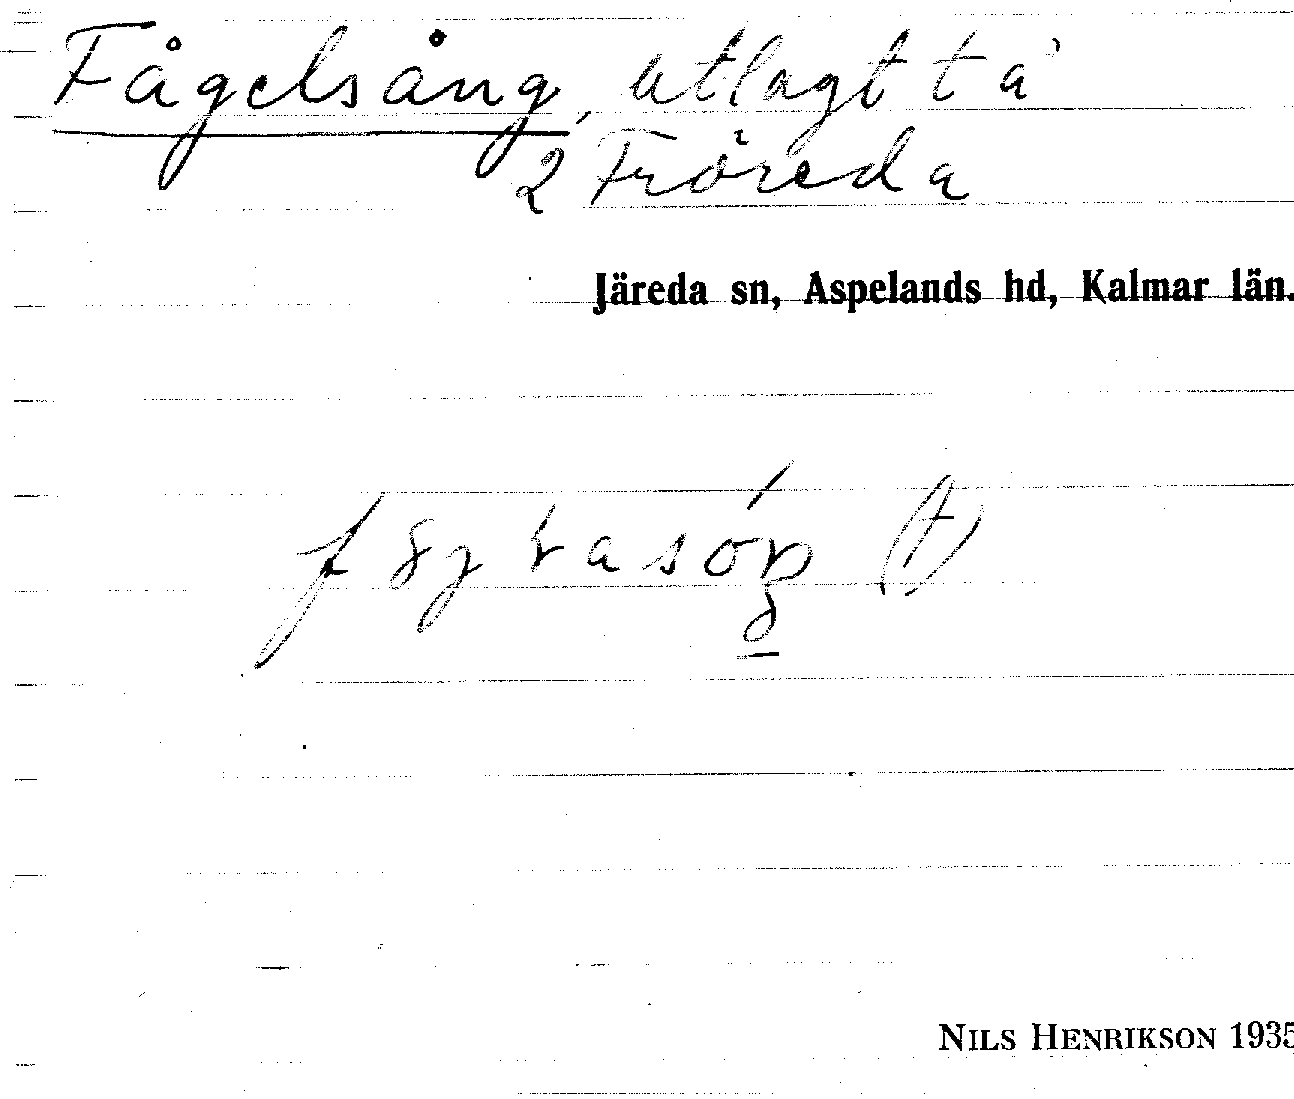 Fågelsång, utlagt t å
2 Fröreda
Järeda sn, Aspelands hd, Kalmar län.
(t)
NILS HENRIKSON 1935